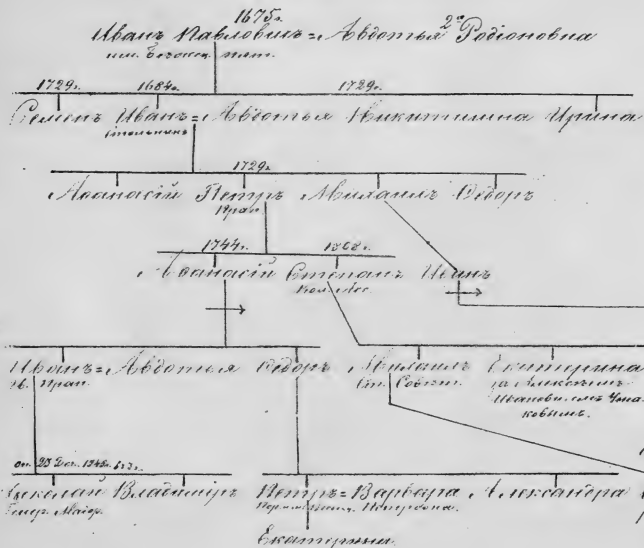 1675г.
Иванъ Павловичъ = Авдотья Родіоновна
1729г. 1684г. 1729г.
Семенъ Иванъ = Авдотья Никитишна Ирина
стольникъ
1729г.
Аѳанасій Петръ Михаилъ Ѳедоръ
Прап.
1744г.
Аѳанасій Степанъ Иванъ
Кол. Асс.
Иванъ = Авдотья Ѳедоръ Михаилъ Екатерина
Прап. Ст. Совѣт. за Алексѣемъ
Николай Владиміръ Петръ = Варвара Александра
Генер. Маіор. Петровна.
Екатерина.